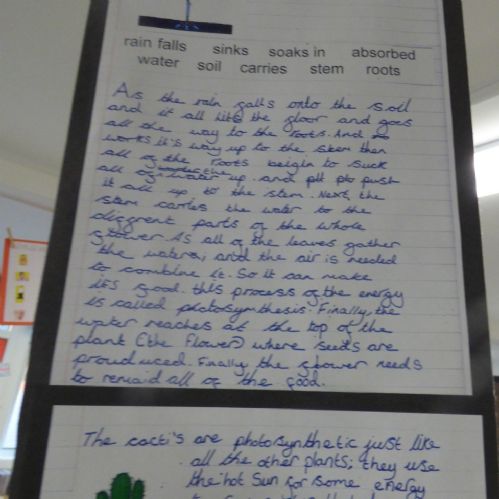 rain falls sinks soaks in absorbed
water soil carries stem roots
As the rain falls onto the soil
and it all hits the floor and goes
all the way to the roots. And
works it's way up to the stem then
all of the roots beigin to suck
all of up. and push
it all up to the stem. Next, the
stem carries the water to the
different parts of the whole
flower. As all of the leaves gather
the waters, and the air is needed
to combine it. So it can make
it's food. this process of the energy
is called photosynthesis. Finally, the
water reaches at the top of the
plant (the flower) where seeds are
prouduced. Finally the flower needs
to all of the food.
The cacti's are photosynthetic just like
all the other plants; they use
the hot Sun for some energy